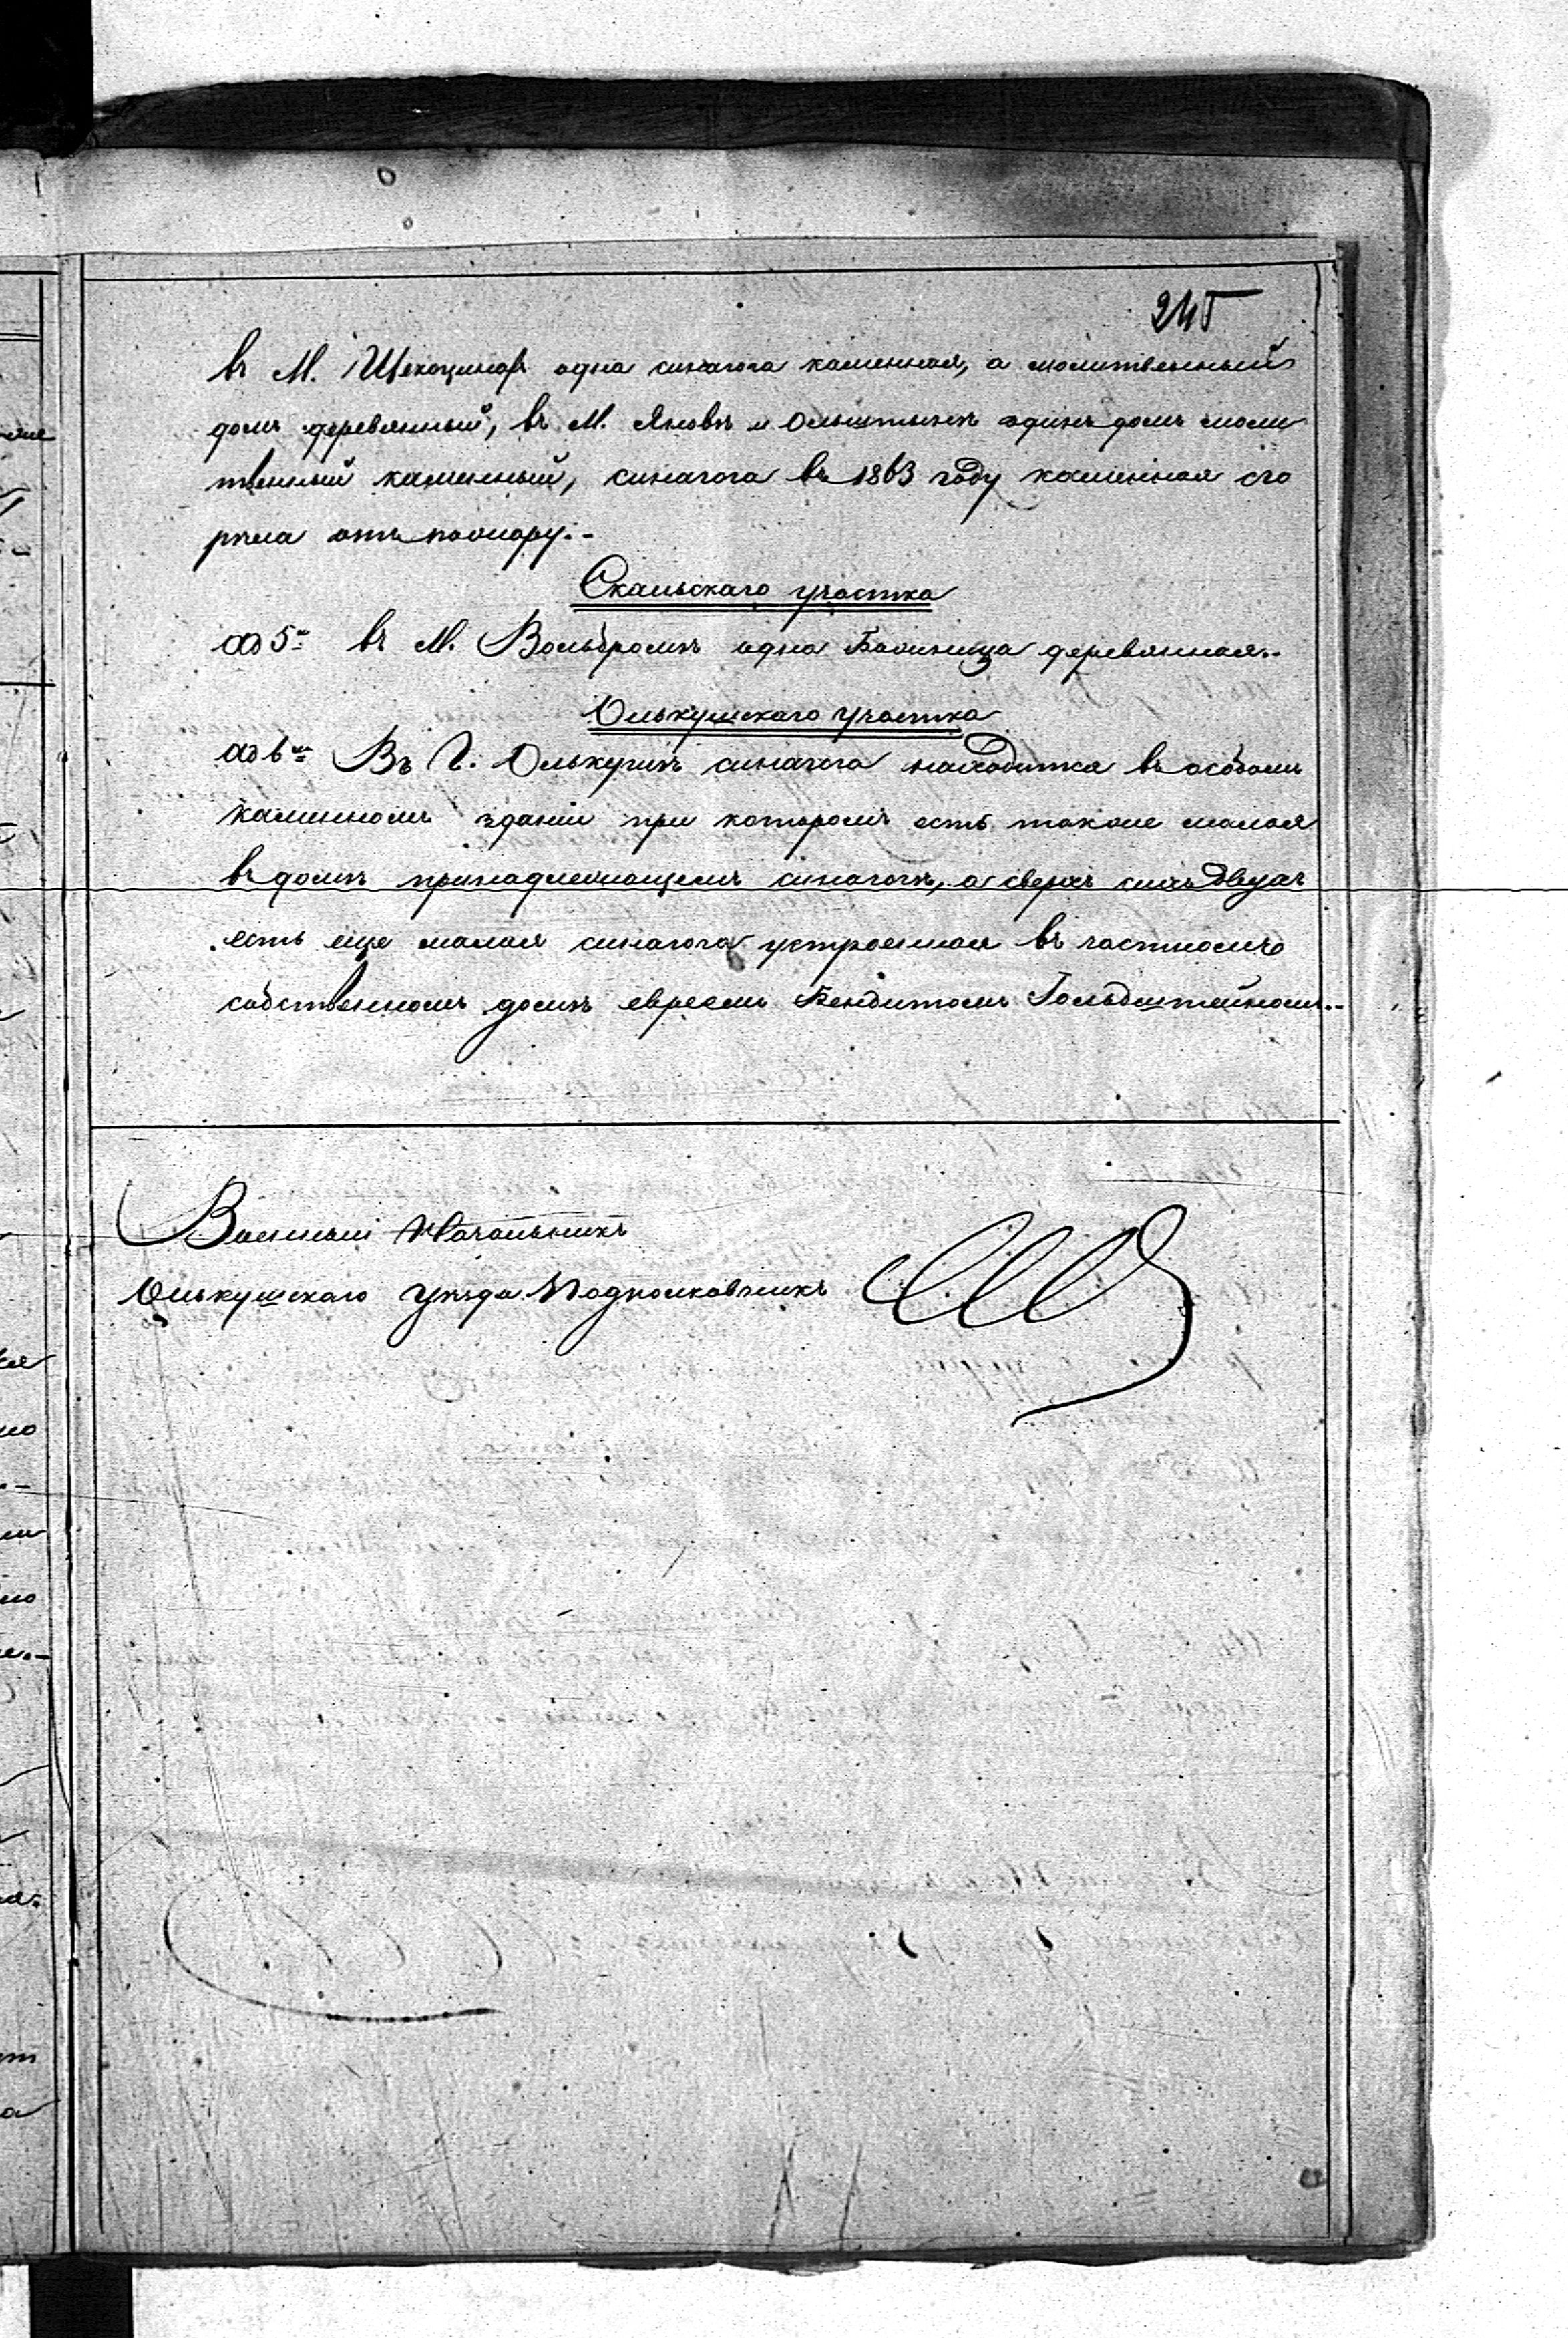 245
въ М. Щекоцинах одна синагога каменная, а молитвенный
домъ деревянный, въ М. Яновѣ и Ольштынѣ одинъ домъ моли
твенный каменный, синагога въ 1863 году каменная сго
рѣла отъ пожару.-
Скальскаго участка
ад 5. въ М. Вольбромѣ одна Божница деревянная.-
Олькушскаго участка
ад 6. Въ Г. Олькушѣ синагога находится въ особомъ
каменномъ зданіи при которомъ есть также малая
въ домѣ принадлежащемъ синагогѣ, а сверхъ сихъ двухъ
есть еще малая синагога устроенная въ частномъ
собственномъ домѣ евреемъ Бендитомъ Гольдштейномъ.-
Военный Начальникъ
Олькушскаго Уѣзда Подполковникъ